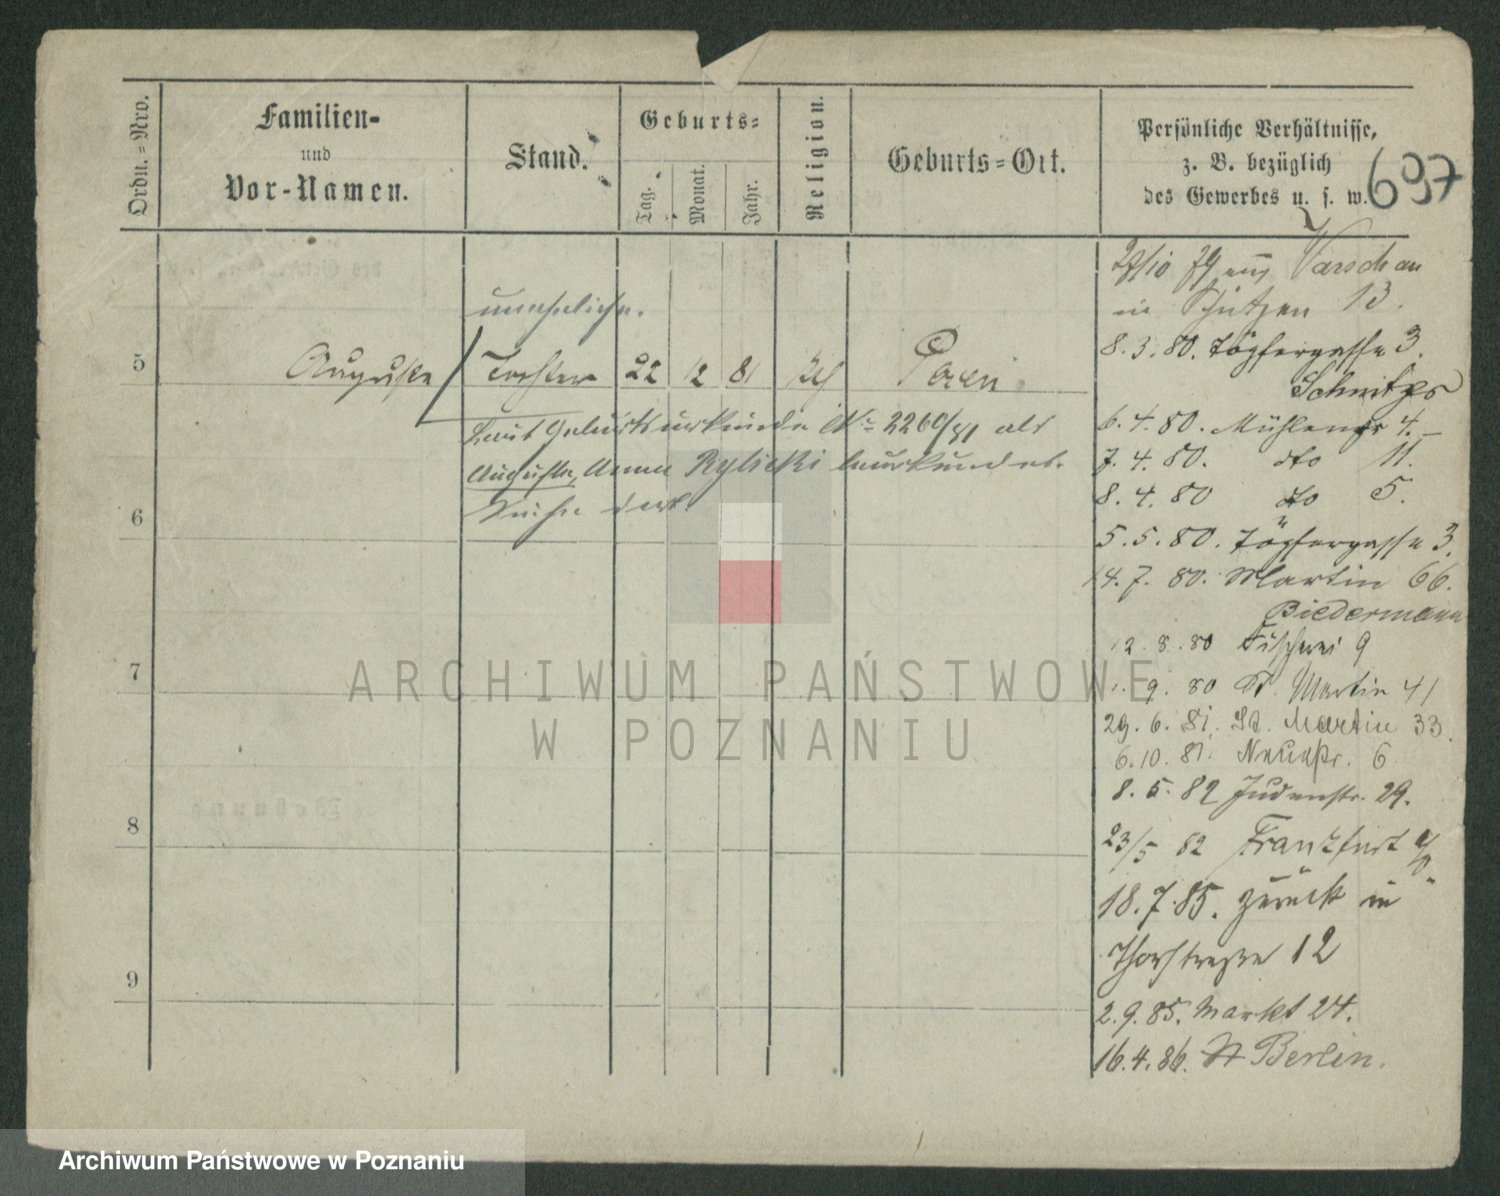 Ordn.=Nro.
Familien-
und
Vor-Namen.
Stand.
Geburts=
Tag.
Monat.
Jahr.
Religion.
Geburts=Ort.
Persönliche Verhältnisse,
z. B. bezüglich
des Gewerbes u. s. w.
697
uneheliche.
5 Auguste Tochter 22 12 81 Posen
Laut Geburtsurkunde No 2260/81 als
Auguste, Anna Rylicki beurkundet.
Siehe dort
6
7
8
9
29/10 79 aus Warschau
in Schützen 13.
8.3.80. Töpfergasse 3.
6.4.80. Mühlenstr 4.
7.4.80. dto 11.
8.4.80 dto 5.
5.5.80. Töpfergasse 3.
14.7.80. Martin 66.
Biedermann
12.8.80 Fischerei 9
1.9.80 St. Martin 41
29.6.81. St. Martin 33.
6.10.81. Neuestr. 6
8.5.82 Judenstr. 29.
23/5 82 Frankfurt a/O.
18.7.85. zurück in
Thorstraße 12
2.9.85. Markt 24.
16.4.86. Berlin.
ARCHIWUM PAŃSTWOWE
W POZNANIU
Archiwum Państwowe w Poznaniu